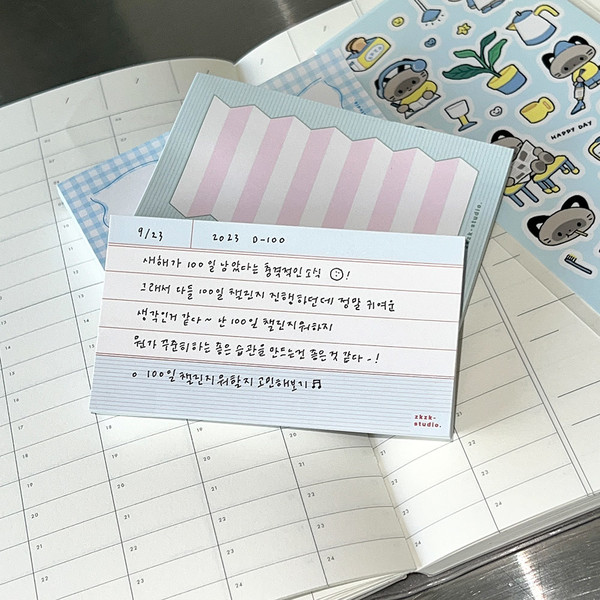 HAPPY DAY
zkzk-studio.
9/23 2023 D-100
새해가 100일 남았다는 충격적인 소식 !
그래서 다들 100일 챌린지 진행하던데 정말 귀여운
생각인거 같다~ 난 100일 챌린지 뭐하지
뭔가 꾸준히하는 좋은 습관을 만드는건 좋은것 같다-!
o 100일 챌린지 뭐할지 고민해보기♬
zkzk-
studio.